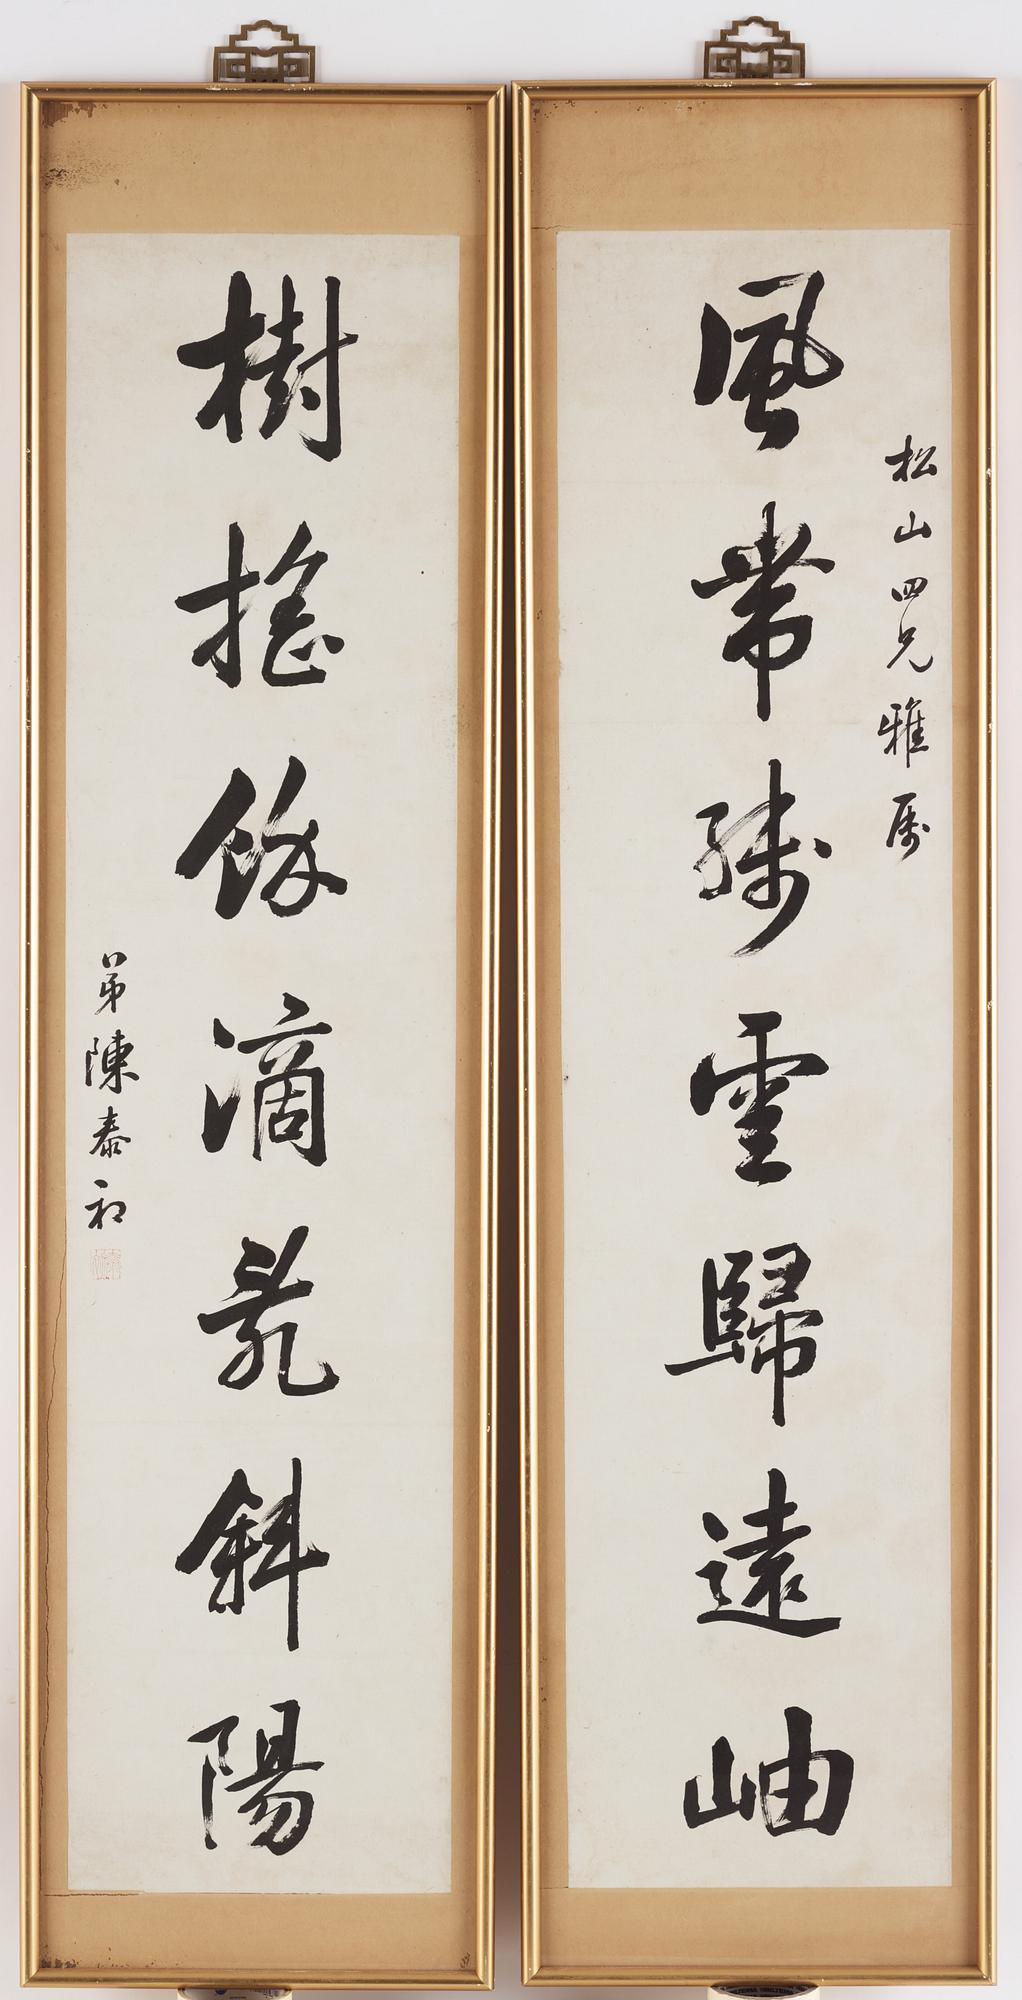 松山四兄雅属
風帶殘雲歸遠岫
樹搖餘滴亂斜陽
弟陳泰初